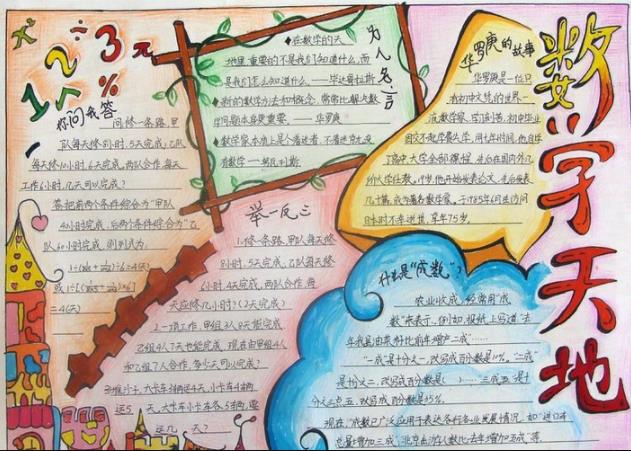 数学天地
x ÷ 3 π
1 2 7 %
你问我答
问修一条路,甲
队每天修8小时,5天完成;乙队
每天修10小时,6天完成。两队合作,每天
工作6小时,几天可以完成?
答:把前两个条件综合为“甲队
40小时完成,后两个条件综合为“乙
队60小时完成。则列式为:
=4(天)
为人名言
◆在数学的天
地里,重要的不是我们知道什么,而
是我们怎么知道什么。——毕达哥拉斯
◆新的数学方法和概念,常常比解决数
学问题本身更重要。——华罗庚
◆数学家本质上是个着迷者,不着迷就没
有数学——努瓦列斯
华罗庚的故事
华罗庚是一位只
有初中文凭的世界一
流数学家。学习刻苦,初中毕业
因交不起学费失学,用七年时间,他自学
了高中大学全部课程,并为在国内外几
所大学任教。19岁,他开始发表论文,先后发表
几十篇,成为著名数学家。于1985年6月出访问
日本时不幸逝世,享年75岁。
举一反三
1.修一条路,甲队每天修
8小时,5天完成;乙队每天修
6小时,4天完成,两队合作,每
天应修几小时?(2天完成)
2.一项工作,甲组3人8天能完成,
乙组4人7天也能完成,现在由甲组4人
和乙组7人合作,多少天可以完成?
天,大卡车小卡车各5辆,要
运几天?
什么是“成数”?
农业收成,经常用“成
数”来表示。例如,报纸上写道:“去
年我县油菜籽比前年增产二成”……
“一成”是十分之一,改写成百分数是10%。“二成”
是十分之二,改写成百分数是( )……“三成五”是十
分之三点五,改写成百分数是35%
现在,“成数”已广泛应用于表达各行各业发展情况,如“进口车
总量增加三成”,“北京出游人数比去年增加五成”等